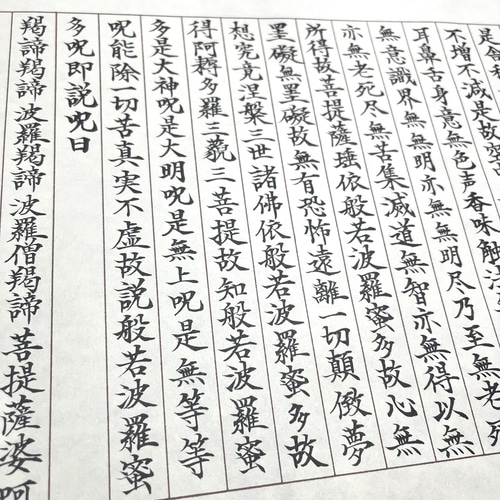 是舍
不増不減是故空
耳鼻舌身意無色声香味触法
無意識界無無明亦無無明尽乃至無老死
亦無老死尽無苦集滅道無智亦無得以無
所得故菩提薩埵依般若波羅蜜多故心無
罣礙無罣礙故無有恐怖遠離一切顛倒夢
想究竟涅槃三世諸佛依般若波羅蜜多故
得阿耨多羅三藐三菩提故知般若波羅蜜
多是大神呪是大明呪是無上呪是無等等
呪能除一切苦真実不虚故説般若波羅蜜
多呪即説呪曰
羯諦羯諦波羅羯諦波羅僧羯諦菩提薩婆